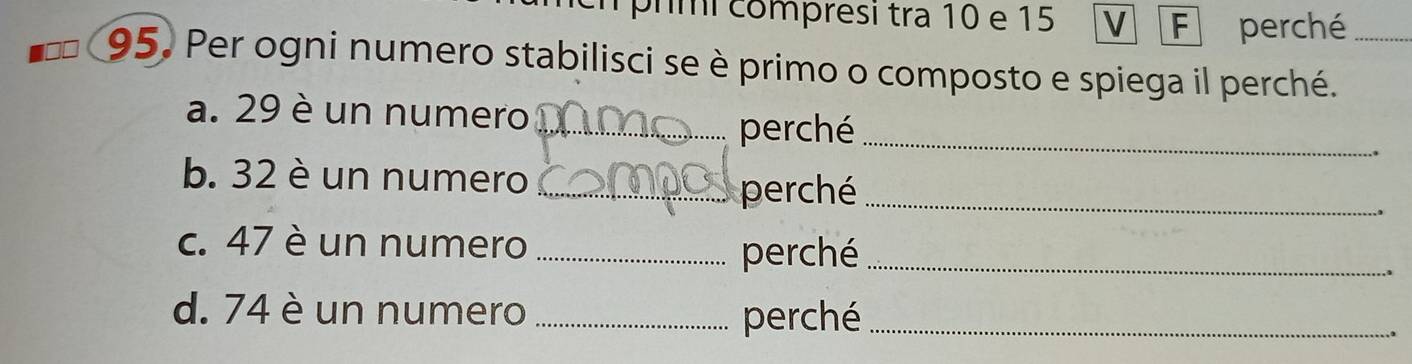 primi compresi tra 10 e 15 V F perché
95. Per ogni numero stabilisci se è primo o composto e spiega il perché.
a. 29 è un numero primo perché .
b. 32 è un numero compos perché .
c. 47 è un numero perché .
d. 74 è un numero perché .